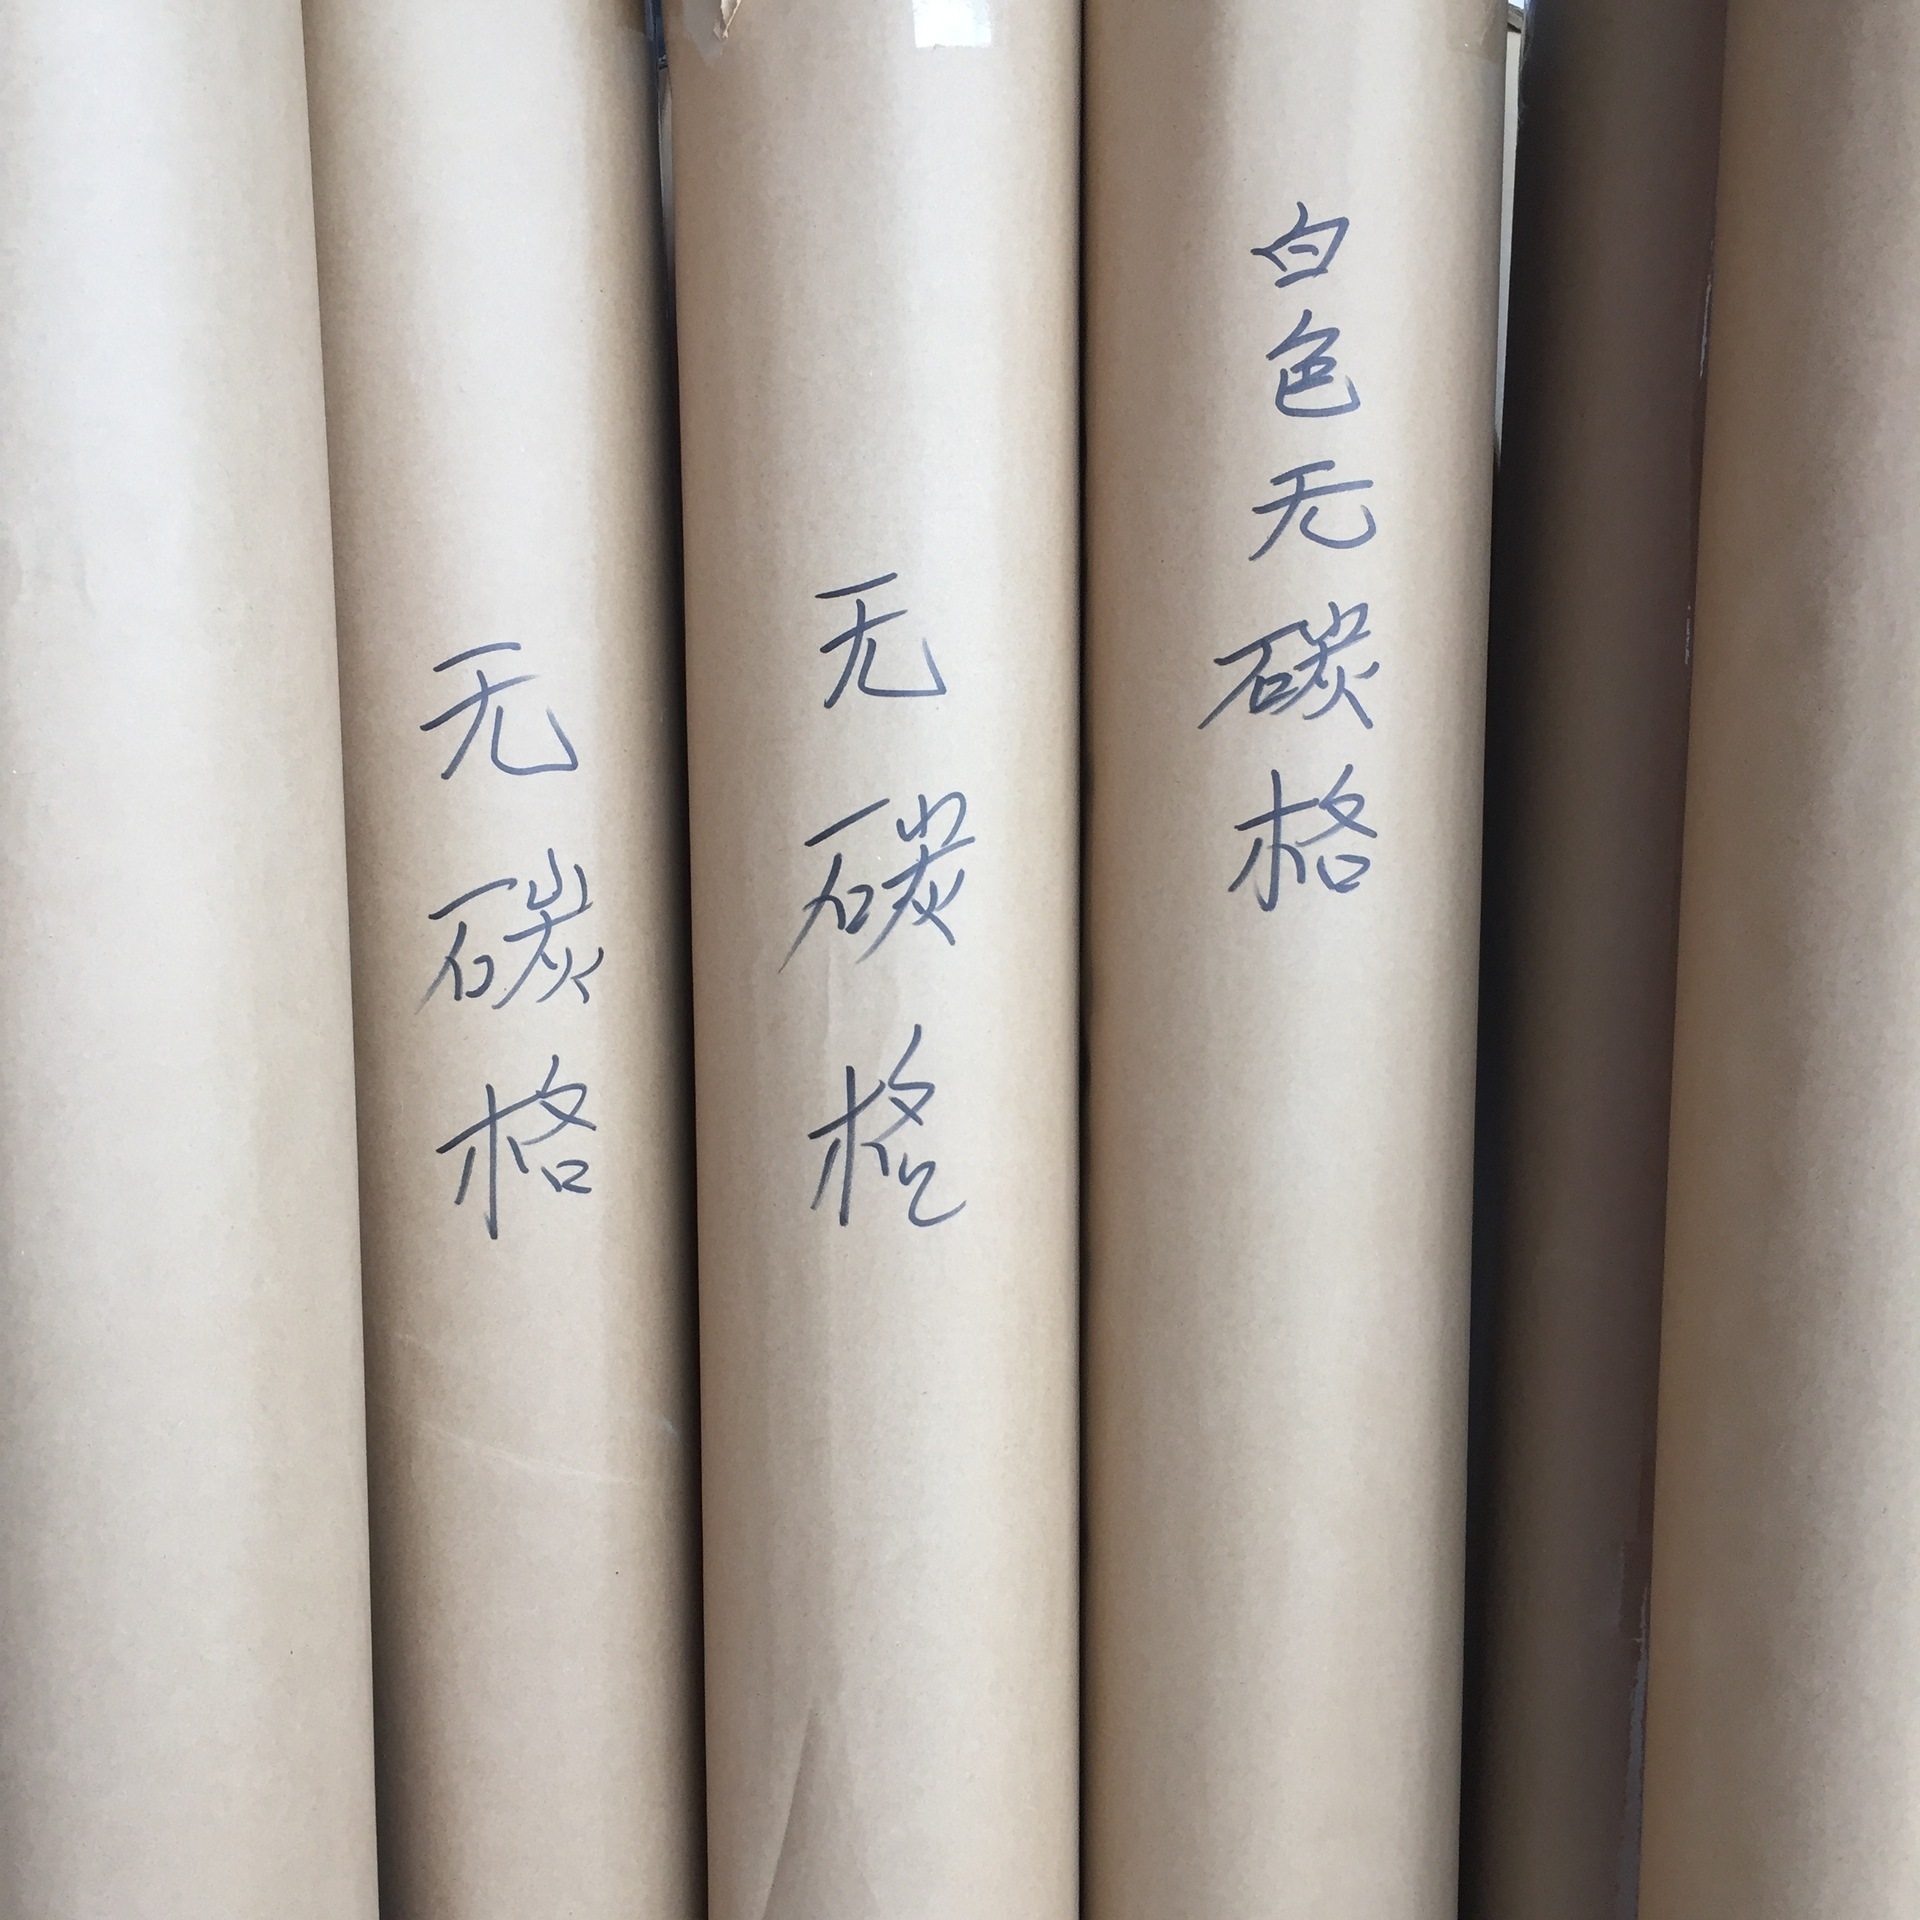 无碳格
无碳格
白色无碳格